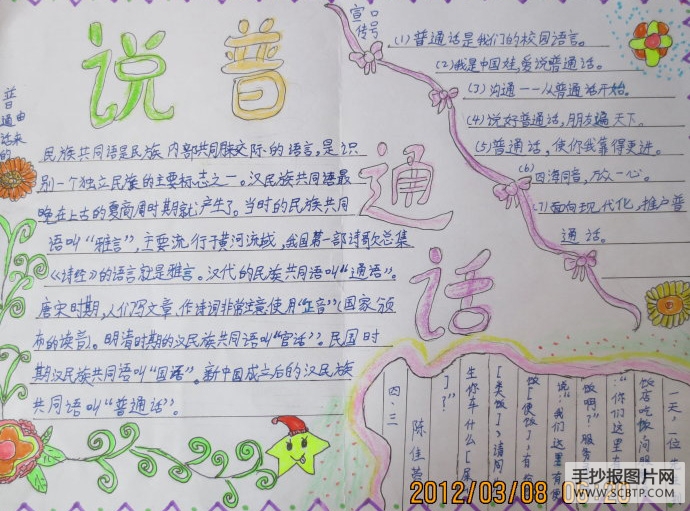 说普
通
话
普通话的由来
民族共同语是民族内部共同用来交际的语言，是识
别一个独立民族的主要标志之一。汉民族共同语最
晚在上古的夏商周时期就产生了。当时的民族共同
语叫“雅言”，主要流行于黄河流域，我国第一部诗歌总集
《诗经》的语言就是雅言。汉代的民族共同语叫“通语”。
唐宋时期，人们写文章，作诗词非常注意使用“正音”（国家颁
布的读音）。明清时期的汉民族共同语叫“官话”。民国时
期汉民族共同语叫“国语”。新中国成立后的汉民族
共同语叫“普通话”。
宣传口号
(1)普通话是我们的校园语言。
(2)我是中国娃，爱说普通话。
(3)沟通——从普通话开始。
(4)说好普通话，朋友遍天下。
(5)普通话，使你我靠得更进。
(6)四海同音，放一心。
(7)面向现代化，推户普
通话。
一天，一位
饭店吃饭问服
“你们这里有
饭啊？”服务
说“我们这里有便
饭［便饭］，有
［类饭］，请问
生你车什么［屎
］？”
陈佳
四：三
2012/03/08
手抄报图片网
WWW.SCBTP.COM